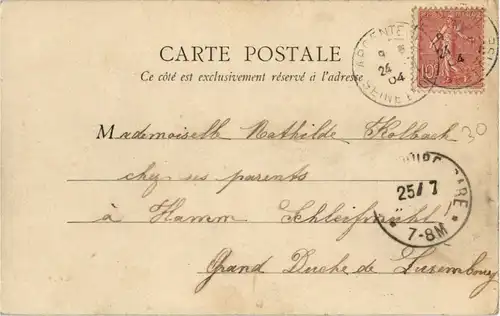 CARTE POSTALE
Ce côté est exclusivement réservé à l'adresse
ARGENTE
24
04
SEINE
10
30
Mademoiselle Mathilde Kolbach
chez ses parents
à Hamm Schleifmühl
Grand Duché de Luxembourg
GARE
25/7
7-8M